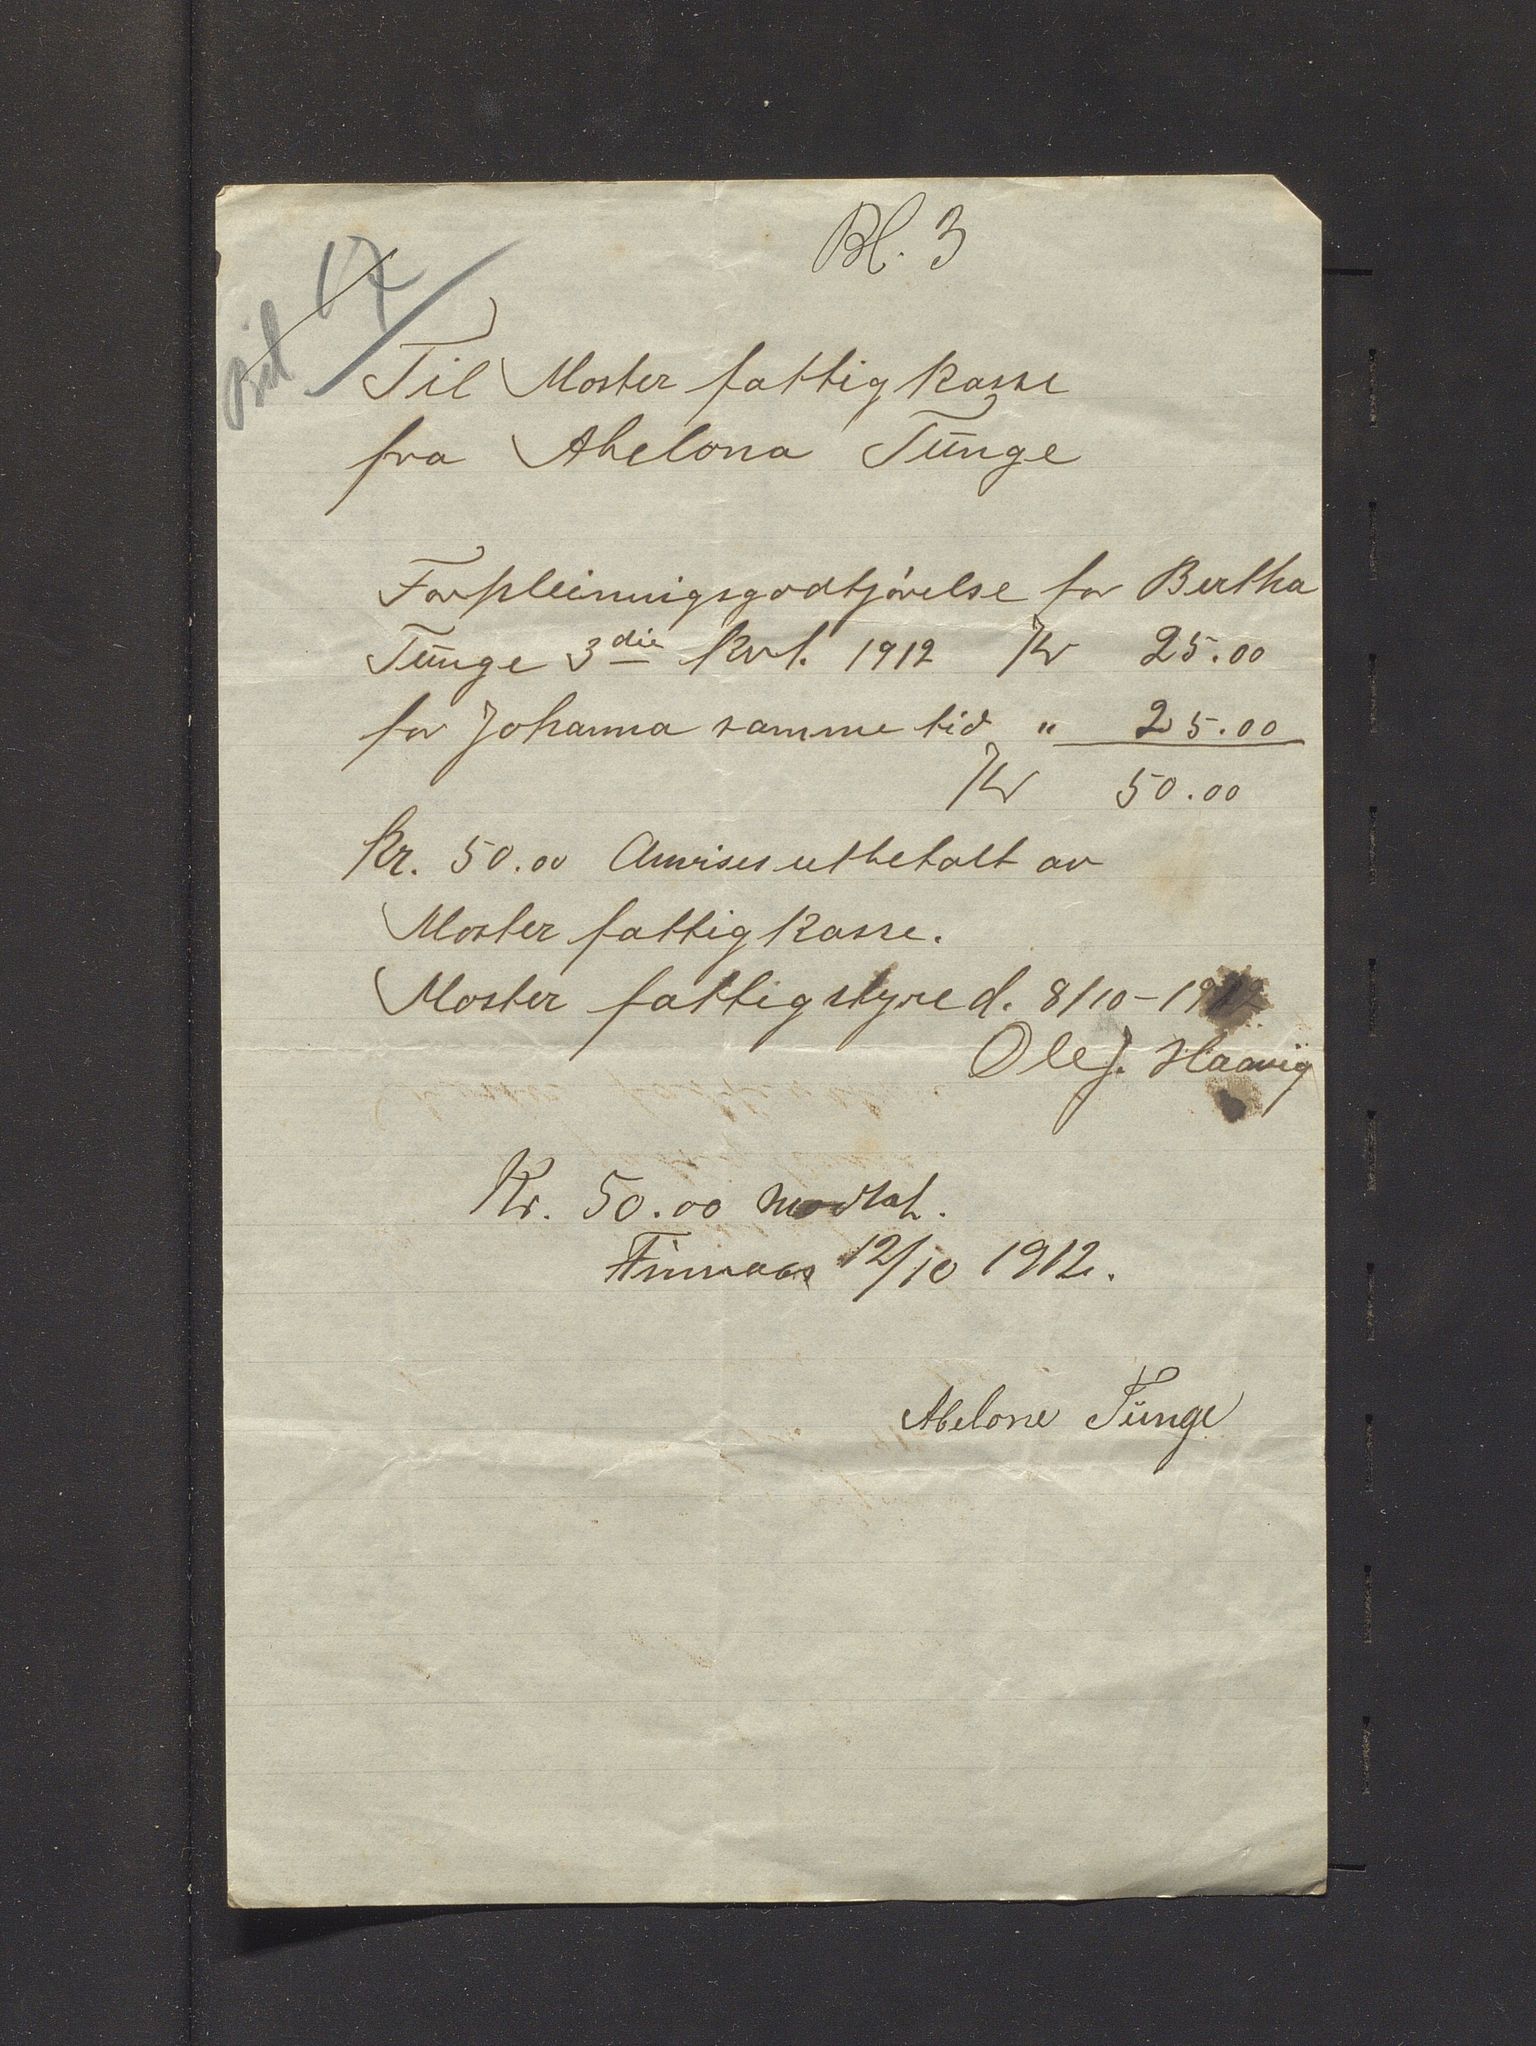 Bl. 3
Bil 17
Til Moster fattigkasse
fra Abelona Tunge
Forpleiningsgodtjörelse for Bertha
Tunge 3die kvt. 1912 Kr 25.00
for Johanna samme tid " 25.00
Kr 50.00
Kr. 50.00 Anvises utbetalt av
Moster fattigkasse.
Moster fattigstyre d. 8/10-1912
Ole J. Haavig
Kr. 50.00 modtat.
Finnaas 12/10 1912.
Abelone Tunge